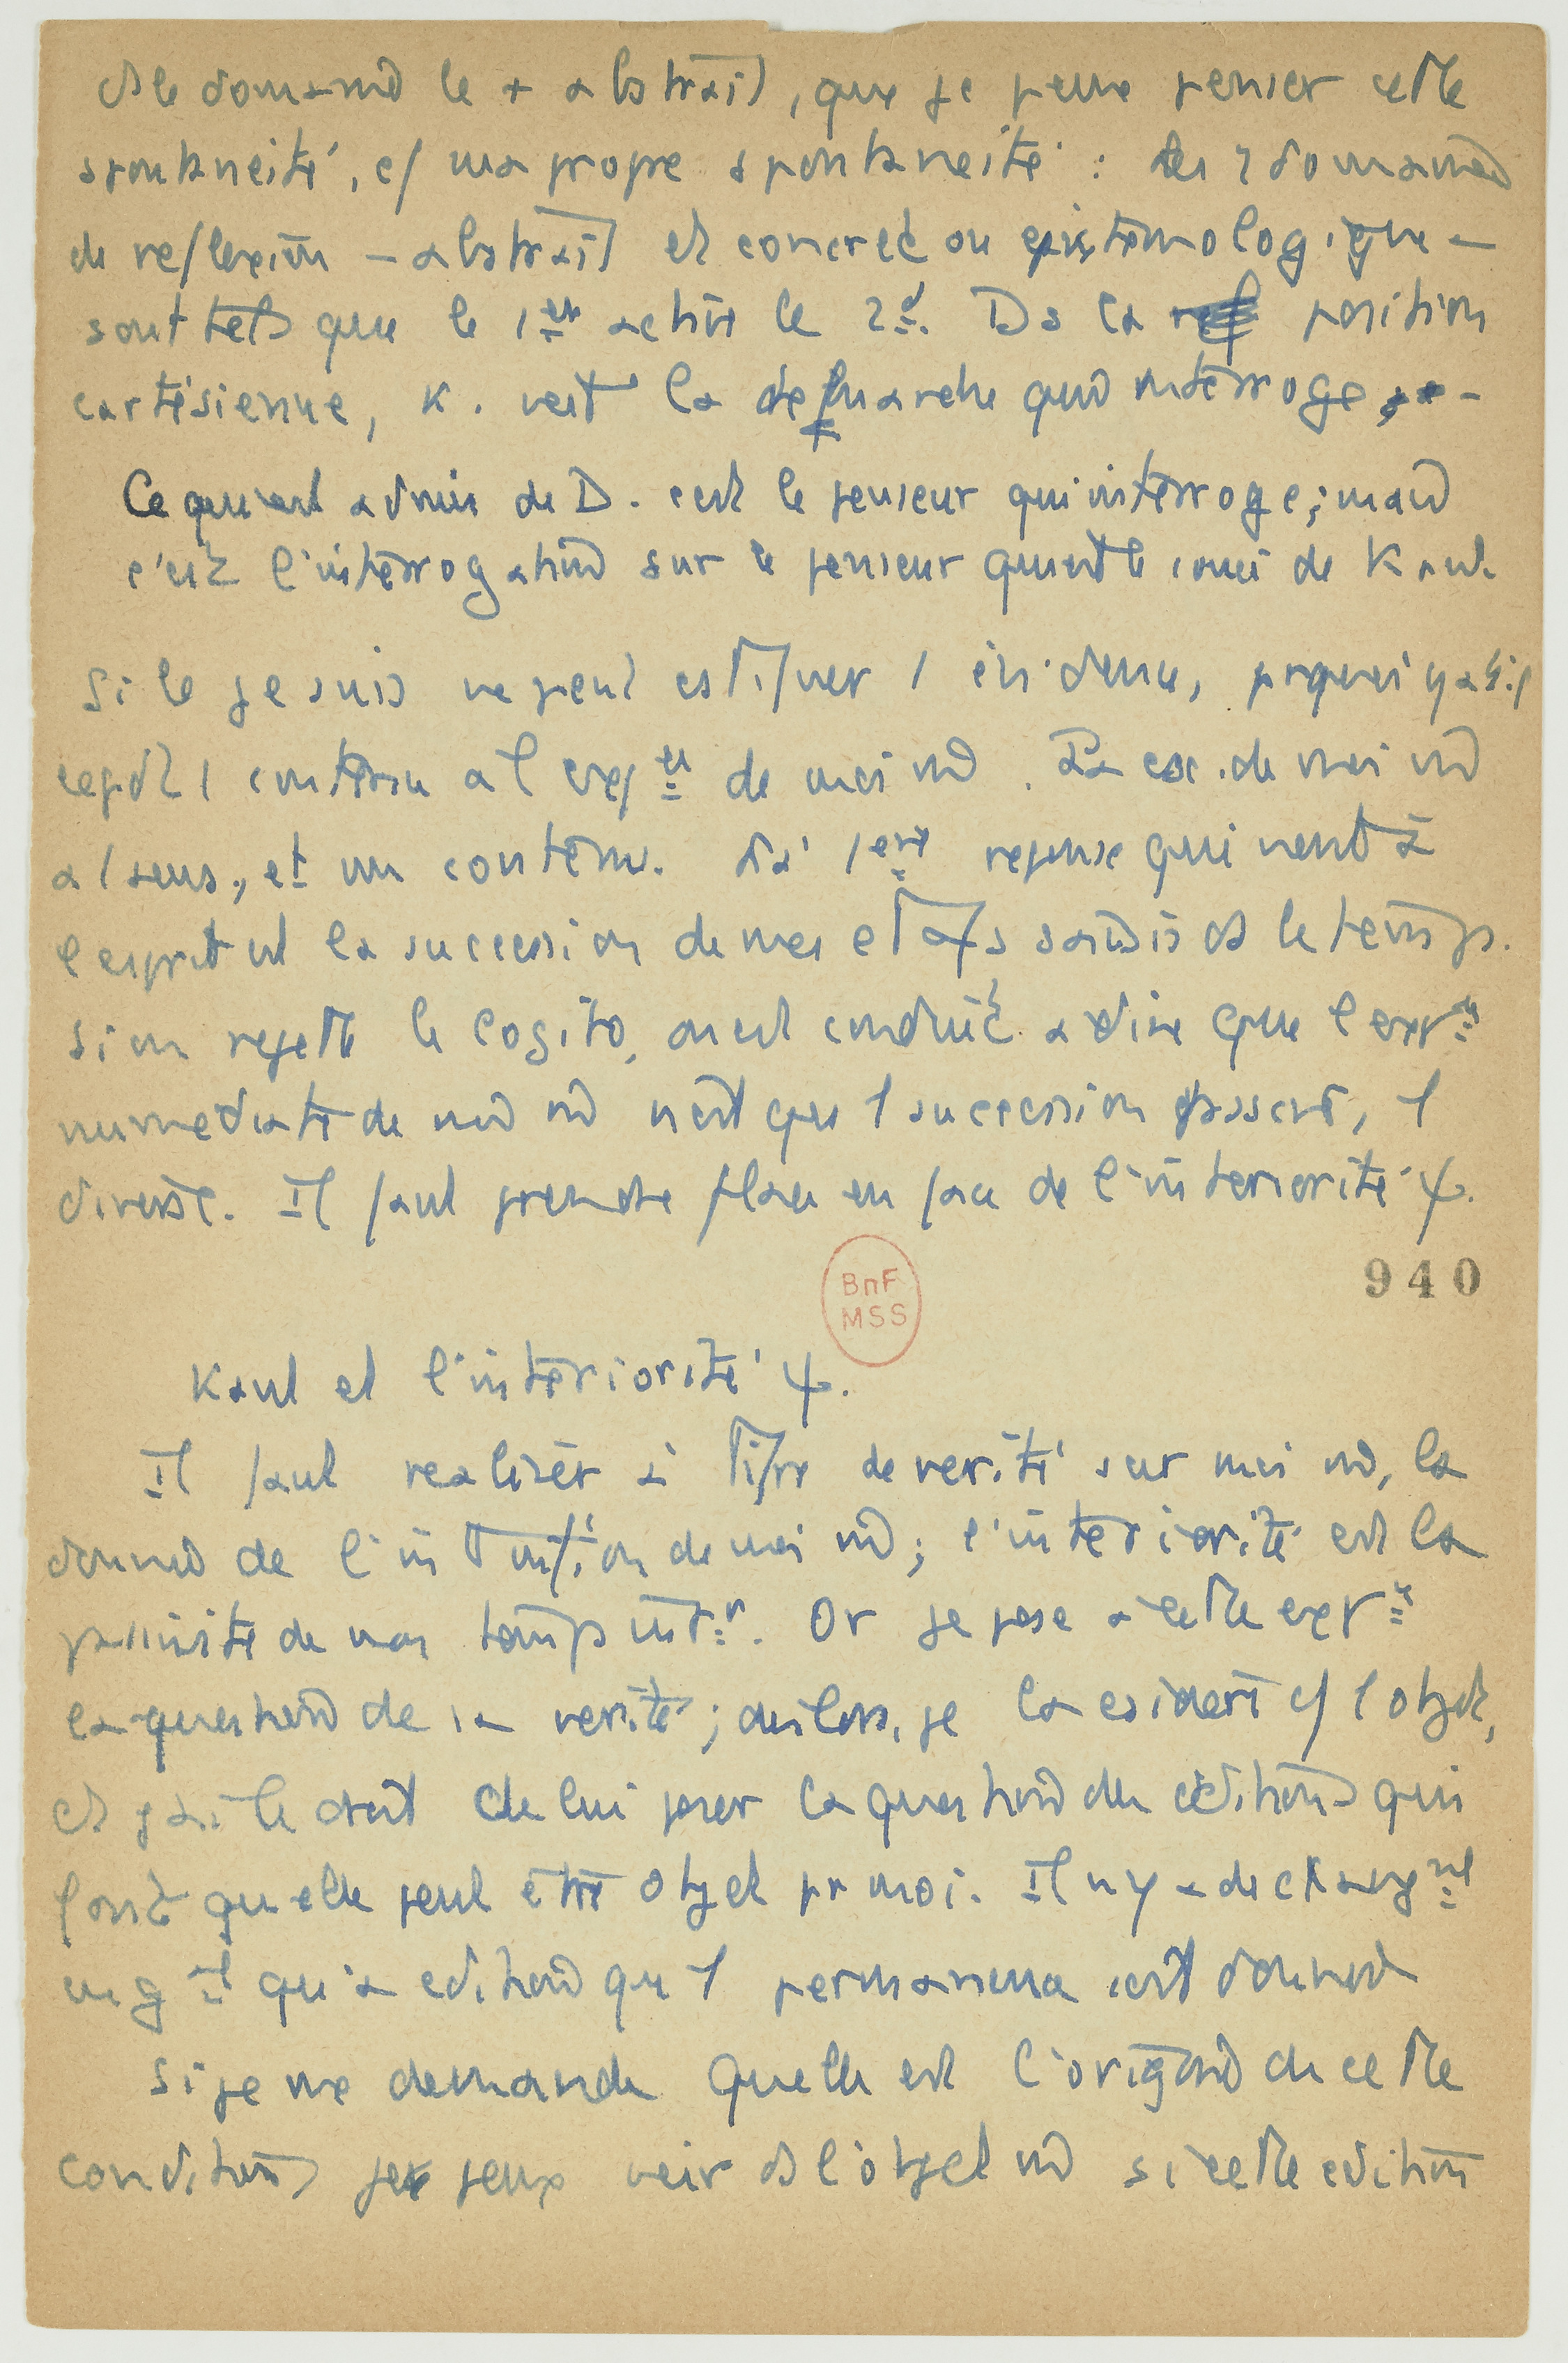 ds le domaine le + abstrait, que je peux penser cette
spontaneité, c/ ma propre spontaneité : les 2 domaines
de reflexion – abstrait et concret ou epistemologique –
sont tels que le 1er active le 2d. Ds la position
cartésienne, K. voit la demarche qui interroge
Ce qui est admis de D. c'est le penseur qui interroge ; mais
c'est l'interrogation sur le penseur qui est le souci de Kant.
Si le je suis ne peut 1 évidence, prquoi y a t-il
1 contenu a l'expce de moi m̂. La csc. de moi m̂
a 1 sens, et un contenu. La 1ere reponse qui vient à
l'esprit est la succession de mes etats saisis ds le temps.
Si on rejette le Cogito, on est conduit a dire que l'expce
immediate de moi m̂ n'est que 1 succession, 1
diversité. Il faut prendre place en face de l'interiorité ψ.
940
BnF
MSS
Kant et l'interiorité ψ.
Il faut realiser à titre de verité sur moi m̂, la
donnée de l'intuition de moi m̂ ; l'interiorité est la
de mon temps intr. Or je pose a cette expce
la question de sa verité ; des lors, je la csidere c/ 1 objet,
et j'ai le droit de lui poser la question des cditions qui
font qu'elle peut être objet pr moi. Il n'y a de changmt
qu'a cdition qu 1 permanence soit donnée
Si je me demande quelle est l'origine de cette
condition je peux voir ds l'objet m̂ si cette cdition